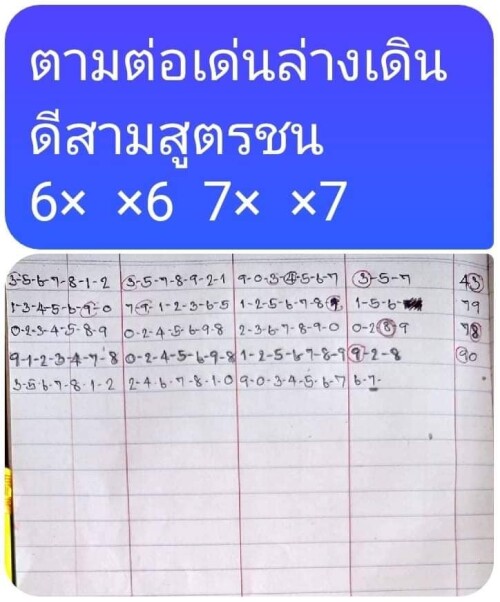 ตามต่อเด่นล่างเดิน
ดีสามสูตรชน
6× ×6 7× ×7
3-5-6-7-8-1-2 3-5-7-8-9-2-1 9-0-3-4-5-6-7 3-5-7 43
1-3-4-5-6-9-0 7-9-1-2-3-6-5 1-2-5-6-7-8-9 1-5-6- 79
0-2-3-4-5-8-9 0-2-4-5-6-9-8 2-3-6-7-8-9-0 0-2-8-9 78
9-1-2-3-4-7-8 0-2-4-5-6-9-8 1-2-5-6-7-8-9 9-2-8 90
3-5-6-7-8-1-2 2-4-6-7-8-1-0 9-0-3-4-5-6-7 6-7-